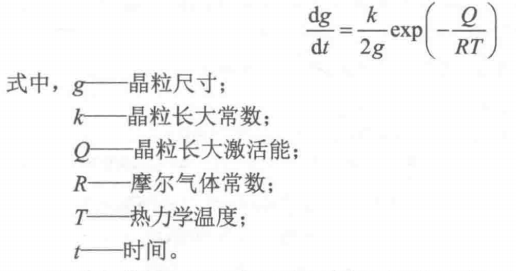 dg/dt = k/2g exp(-Q/RT)
式中，g——晶粒尺寸；
k——晶粒长大常数；
Q——晶粒长大激活能；
R——摩尔气体常数；
T——热力学温度；
t——时间。